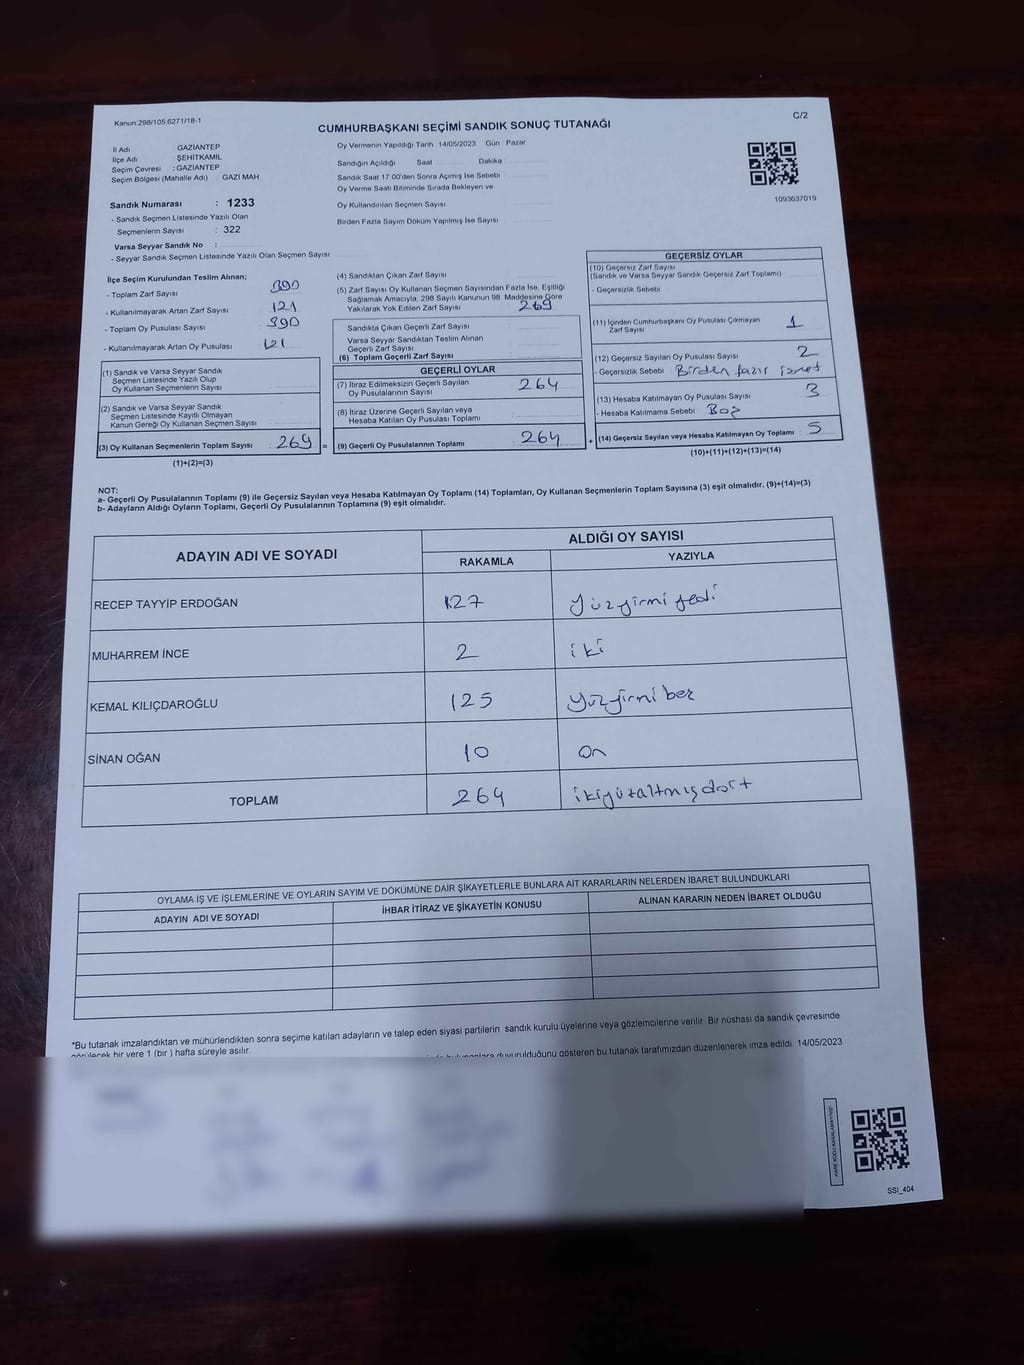 Kanun:298/105.6271/18-1
C/2
CUMHURBAŞKANI SEÇİMİ SANDIK SONUÇ TUTANAĞI
İl Adı : GAZİANTEP
İlçe Adı : ŞEHİTKAMİL
Seçim Çevresi : GAZİANTEP
Seçim Bölgesi (Mahalle Adı) : GAZİ MAH.
Sandık Numarası : 1233
- Sandık Seçmen Listesinde Yazılı Olan
Seçmenlerin Sayısı : 322
Varsa Seyyar Sandık No :
- Seyyar Sandık Seçmen Listesinde Yazılı Olan Seçmen Sayısı
Oy Vermenin Yapıldığı Tarih 14/05/2023 Gün Pazar
Sandığın Açıldığı Saat Dakika
Sandık Saat 17.00'den Sonra Açımış İse Sebebi
Oy Verme Saati Bitiminde Sırada Bekleyen ve
Oy Kullandırılan Seçmen Sayısı
Birden Fazla Sayım Döküm Yapılmış İse Sayısı
1093637019
İlçe Seçim Kurulundan Teslim Alınan;
- Toplam Zarf Sayısı 390
- Kullanılmayarak Artan Zarf Sayısı 121
- Toplam Oy Pusulası Sayısı 390
- Kullanılmayarak Artan Oy Pusulası 121
(1) Sandık ve Varsa Seyyar Sandık
Seçmen Listesinde Yazılı Olup
Oy Kullanan Seçmenlerin Sayısı
(2) Sandık ve Varsa Seyyar Sandık
Seçmen Listesinde Kayıtlı Olmayan
Kanun Gereği Oy Kullanan Seçmen Sayısı
(3) Oy Kullanan Seçmenlerin Toplam Sayısı 269 =
(1)+(2)=(3)
(4) Sandıktan Çıkan Zarf Sayısı
(5) Zarf Sayısı Oy Kullanan Seçmen Sayısından Fazla İse, Eşitliği
Sağlamak Amacıyla, 298 Sayılı Kanunun 98. Maddesine Göre
Yakılarak Yok Edilen Zarf Sayısı 269
Sandıkta Çıkan Geçerli Zarf Sayısı
Varsa Seyyar Sandıktan Teslim Alınan
Geçerli Zarf Sayısı
(6) Toplam Geçerli Zarf Sayısı
GEÇERLİ OYLAR
(7) İtiraz Edilmeksizin Geçerli Sayılan
Oy Pusulalarının Sayısı 264
(8) İtiraz Üzerine Geçerli Sayılan veya
Hesaba Katılan Oy Pusulası Toplamı
(9) Geçerli Oy Pusulalarının Toplamı 264 +
GEÇERSİZ OYLAR
(10) Geçersiz Zarf Sayısı
(Sandık ve Varsa Seyyar Sandık Geçersiz Zarf Toplamı)
- Geçersizlik Sebebi
(11) İçinden Cumhurbaşkanı Oy Pusulası Çıkmayan
Zarf Sayısı 1
(12) Geçersiz Sayılan Oy Pusulası Sayısı 2
- Geçersizlik Sebebi Birden fazır ismet
(13) Hesaba Katılmayan Oy Pusulası Sayısı 3
- Hesaba Katılmama Sebebi Boş
(14) Geçersiz Sayılan veya Hesaba Katılmayan Oy Toplamı 5
(10)+(11)+(12)+(13)=(14)
NOT:
a- Geçerli Oy Pusulalarının Toplamı (9) ile Geçersiz Sayılan veya Hesaba Katılmayan Oy Toplamı (14) Toplamları, Oy Kullanan Seçmenlerin Toplam Sayısına (3) eşit olmalıdır. (9)+(14)=(3)
b- Adayların Aldığı Oyların Toplamı, Geçerli Oy Pusulalarının Toplamına (9) eşit olmalıdır.
ADAYIN ADI VE SOYADI
ALDIĞI OY SAYISI
RAKAMLA YAZIYLA
RECEP TAYYİP ERDOĞAN 127 yüzyirmi yedi
MUHARREM İNCE 2 iki
KEMAL KILIÇDAROĞLU 125 yüzyirmi beş
SİNAN OĞAN 10 On
TOPLAM 264 ikiyüzaltmışdört
OYLAMA İŞ VE İŞLEMLERİNE VE OYLARIN SAYIM VE DÖKÜMÜNE DAİR ŞİKAYETLERLE BUNLARA AİT KARARLARIN NELERDEN İBARET BULUNDUKLARI
ADAYIN ADI VE SOYADI İHBAR İTİRAZ VE ŞİKAYETİN KONUSU ALINAN KARARIN NEDEN İBARET OLDUĞU
*Bu tutanak imzalandıktan ve mühürlendikten sonra seçime katılan adayların ve talep eden siyasi partilerin sandık kurulu üyelerine veya gözlemcilerine verilir. Bir nüshası da sandık çevresinde
görülecek bir yere 1 (bir) hafta süreyle asılır.
duyurulduğunu gösteren bu tutanak tarafımızdan düzenlenerek imza edildi. 14/05/2023
KARE KODU KARALAMAYINIZ!
SSI_404